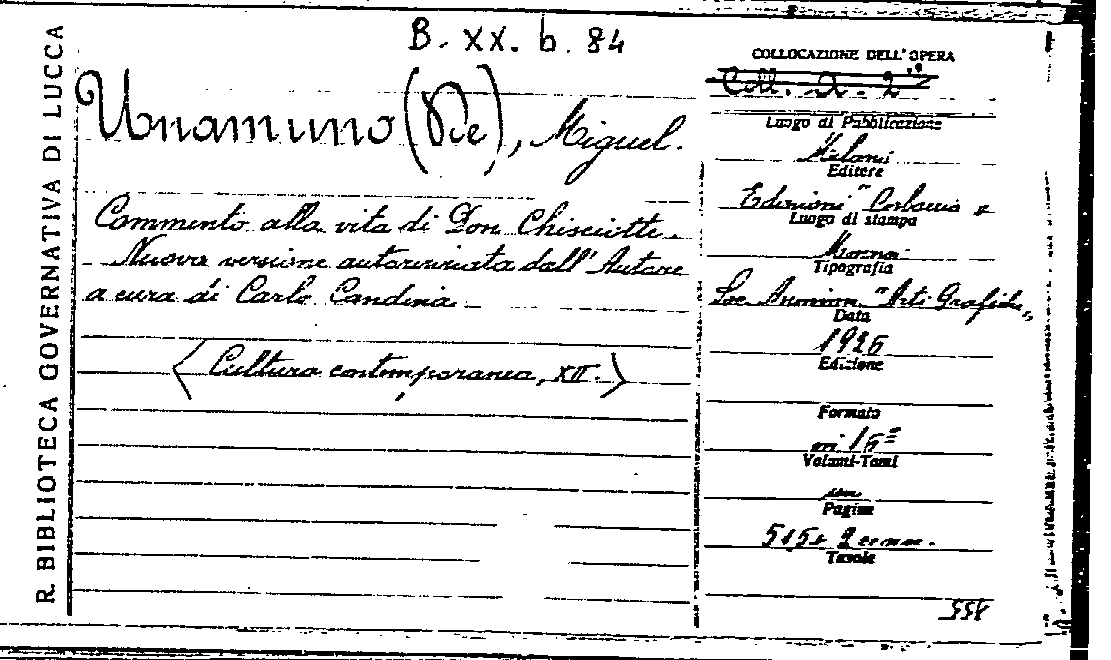 R. BIBLIOTECA GOVERNATIVA DI LUCCA
B. XX. b. 84
Unamuno (De), Miguel.
Commento alla vita di Don Chisciotte.
Nuova versione autorizzata dall'Autore
a cura di Carlo Candida.
(Cultura contemporanea, XII.)
COLLOCAZIONE DELL'OPERA
Coll. A. 2
Luogo di Pubblicazione
Milano
Editore
Edizioni "Corbaccio"
Luogo di stampa
Tipografia
Soc. Anonima "Arti Grafiche"
Data
1926
Edizione
Formato
in 16º
Volumi-Tomi
Pagine
515+2 e nn.
Tavole